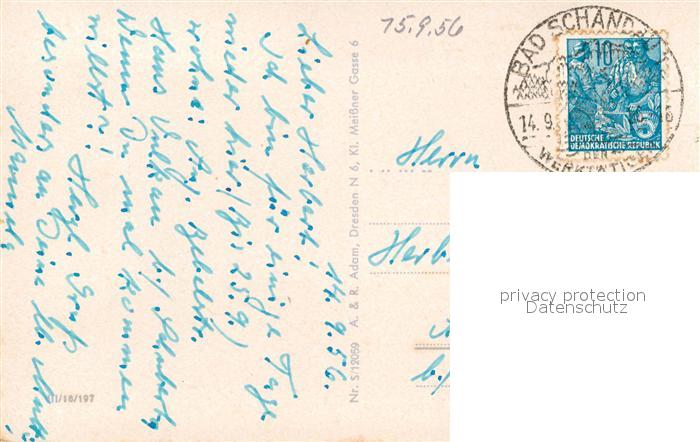 14.9.56.
Lieber Herbert!
Ich bin für einige Tage
wieder hier (bis 25.9.)
wohne:
Haus Vulkan b/
Wenn Du mal kommen
willst!!
Herzl. Gruß
besonders an Deine lb. Mutti
Nr. S/12059 A. & R. Adam, Dresden N 6, Kl. Meißner Gasse 6
III/18/197
15.9.56
BAD SCHANDAU
14.9.
10
DEUTSCHE
DEMOKRATISCHE REPUBLIK
Herrn
Herb
b/
privacy protection
Datenschutz